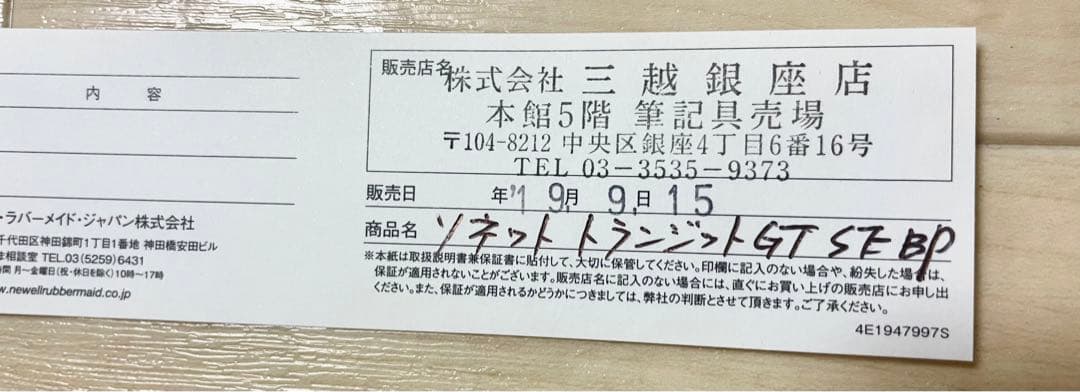 内 容
・ラバーメイド・ジャパン株式会社
千代田区神田錦町1丁目1番地 神田橋安田ビル
ま相談室 TEL.03(5259)6431
時間 月~金曜日(祝・休日を除く)10時~17時
www.newellrubbermaid.co.jp
販売店名 株式会社 三越銀座店
本館5階 筆記具売場
〒104-8212 中央区銀座4丁目6番16号
TEL 03-3535-9373
販売日 年'19.月 9.日 15
商品名 ソネット トランジットGT SE BP
※本紙は取扱説明書兼保証書に貼付して、大切に保管してください。印欄に記入のない場合や、紛失した場合は、
保証が適用されないことがございます。販売店名に記入のない場合には、直ぐにお買い上げの販売店にお申し出
ください。また、保証が適用されるかどうかにつきましては、弊社の判断とさせて頂きます。ご了承ください。
4E1947997S